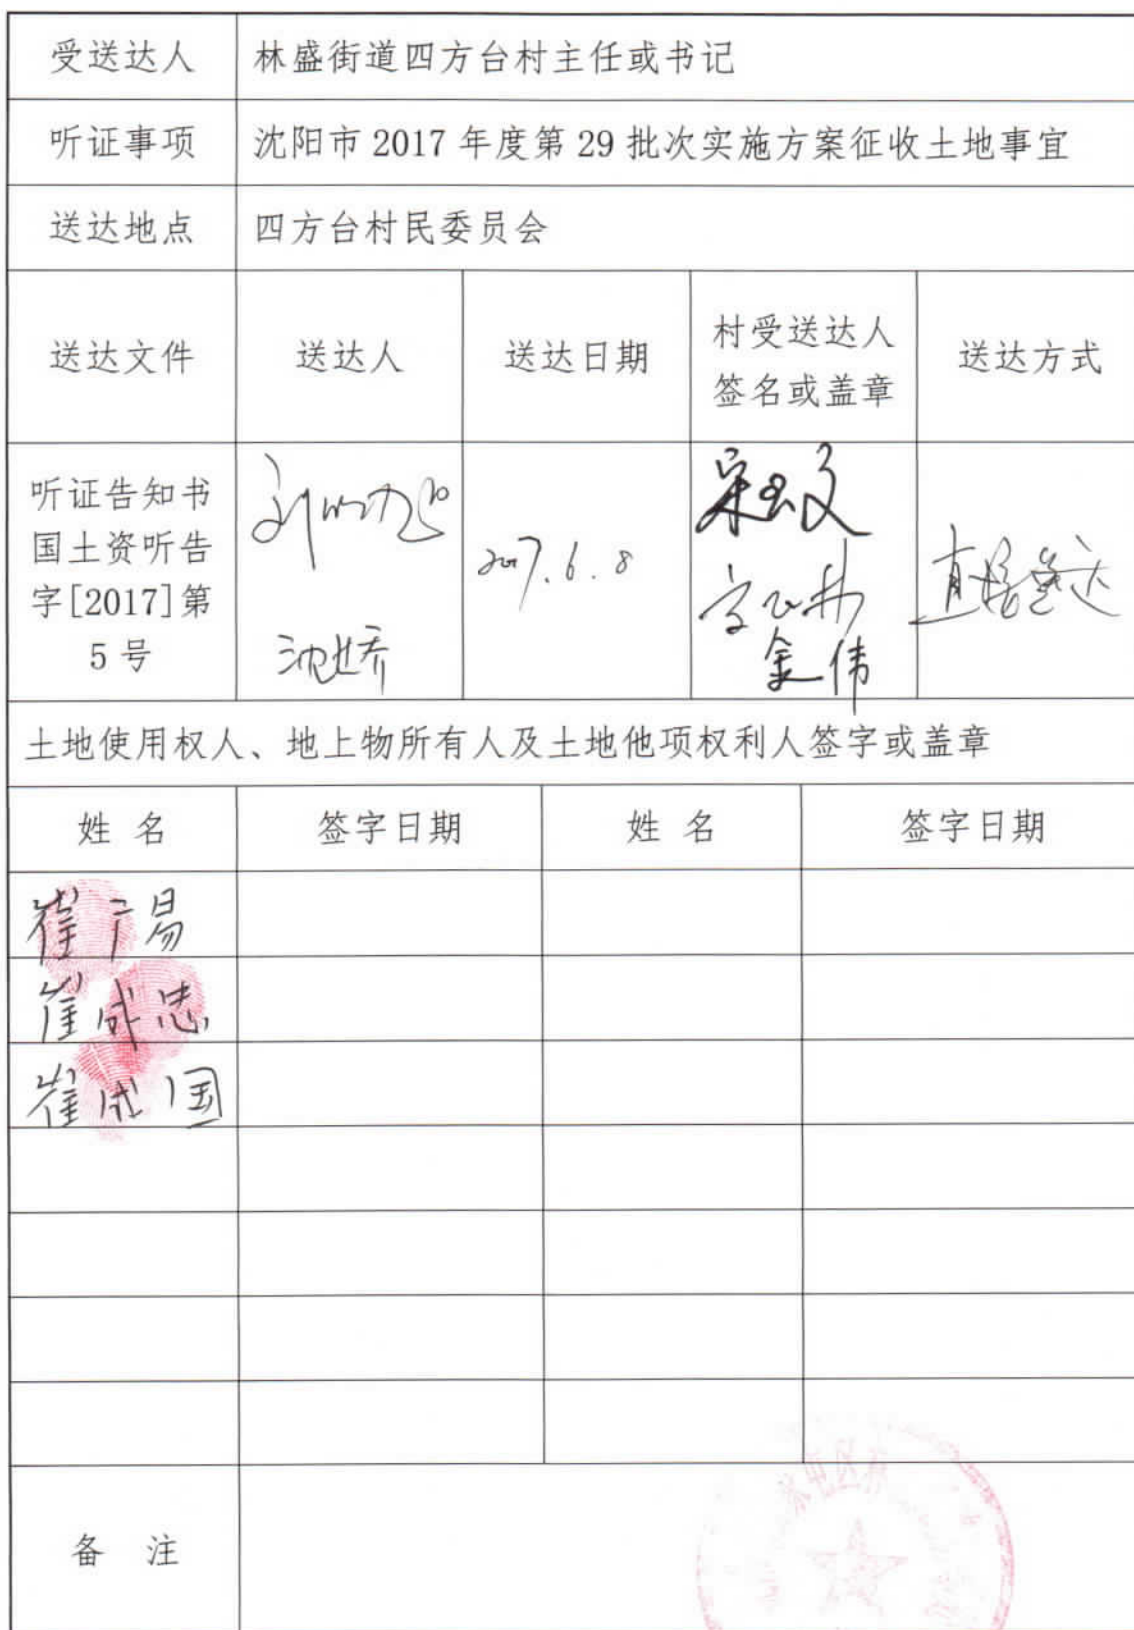 受送达人 林盛街道四方台村主任或书记
听证事项 沈阳市 2017 年度第 29 批次实施方案征收土地事宜
送达地点 四方台村民委员会
送达文件 送达人 送达日期 村受送达人 送达方式
签名或盖章
听证告知书
国土资听告
字[2017]第
5 号
沈娇
2017.6.8
金伟
直接送达
土地使用权人、地上物所有人及土地他项权利人签字或盖章
姓 名 签字日期 姓 名 签字日期
崔广易
崔成忠
崔成国
备 注